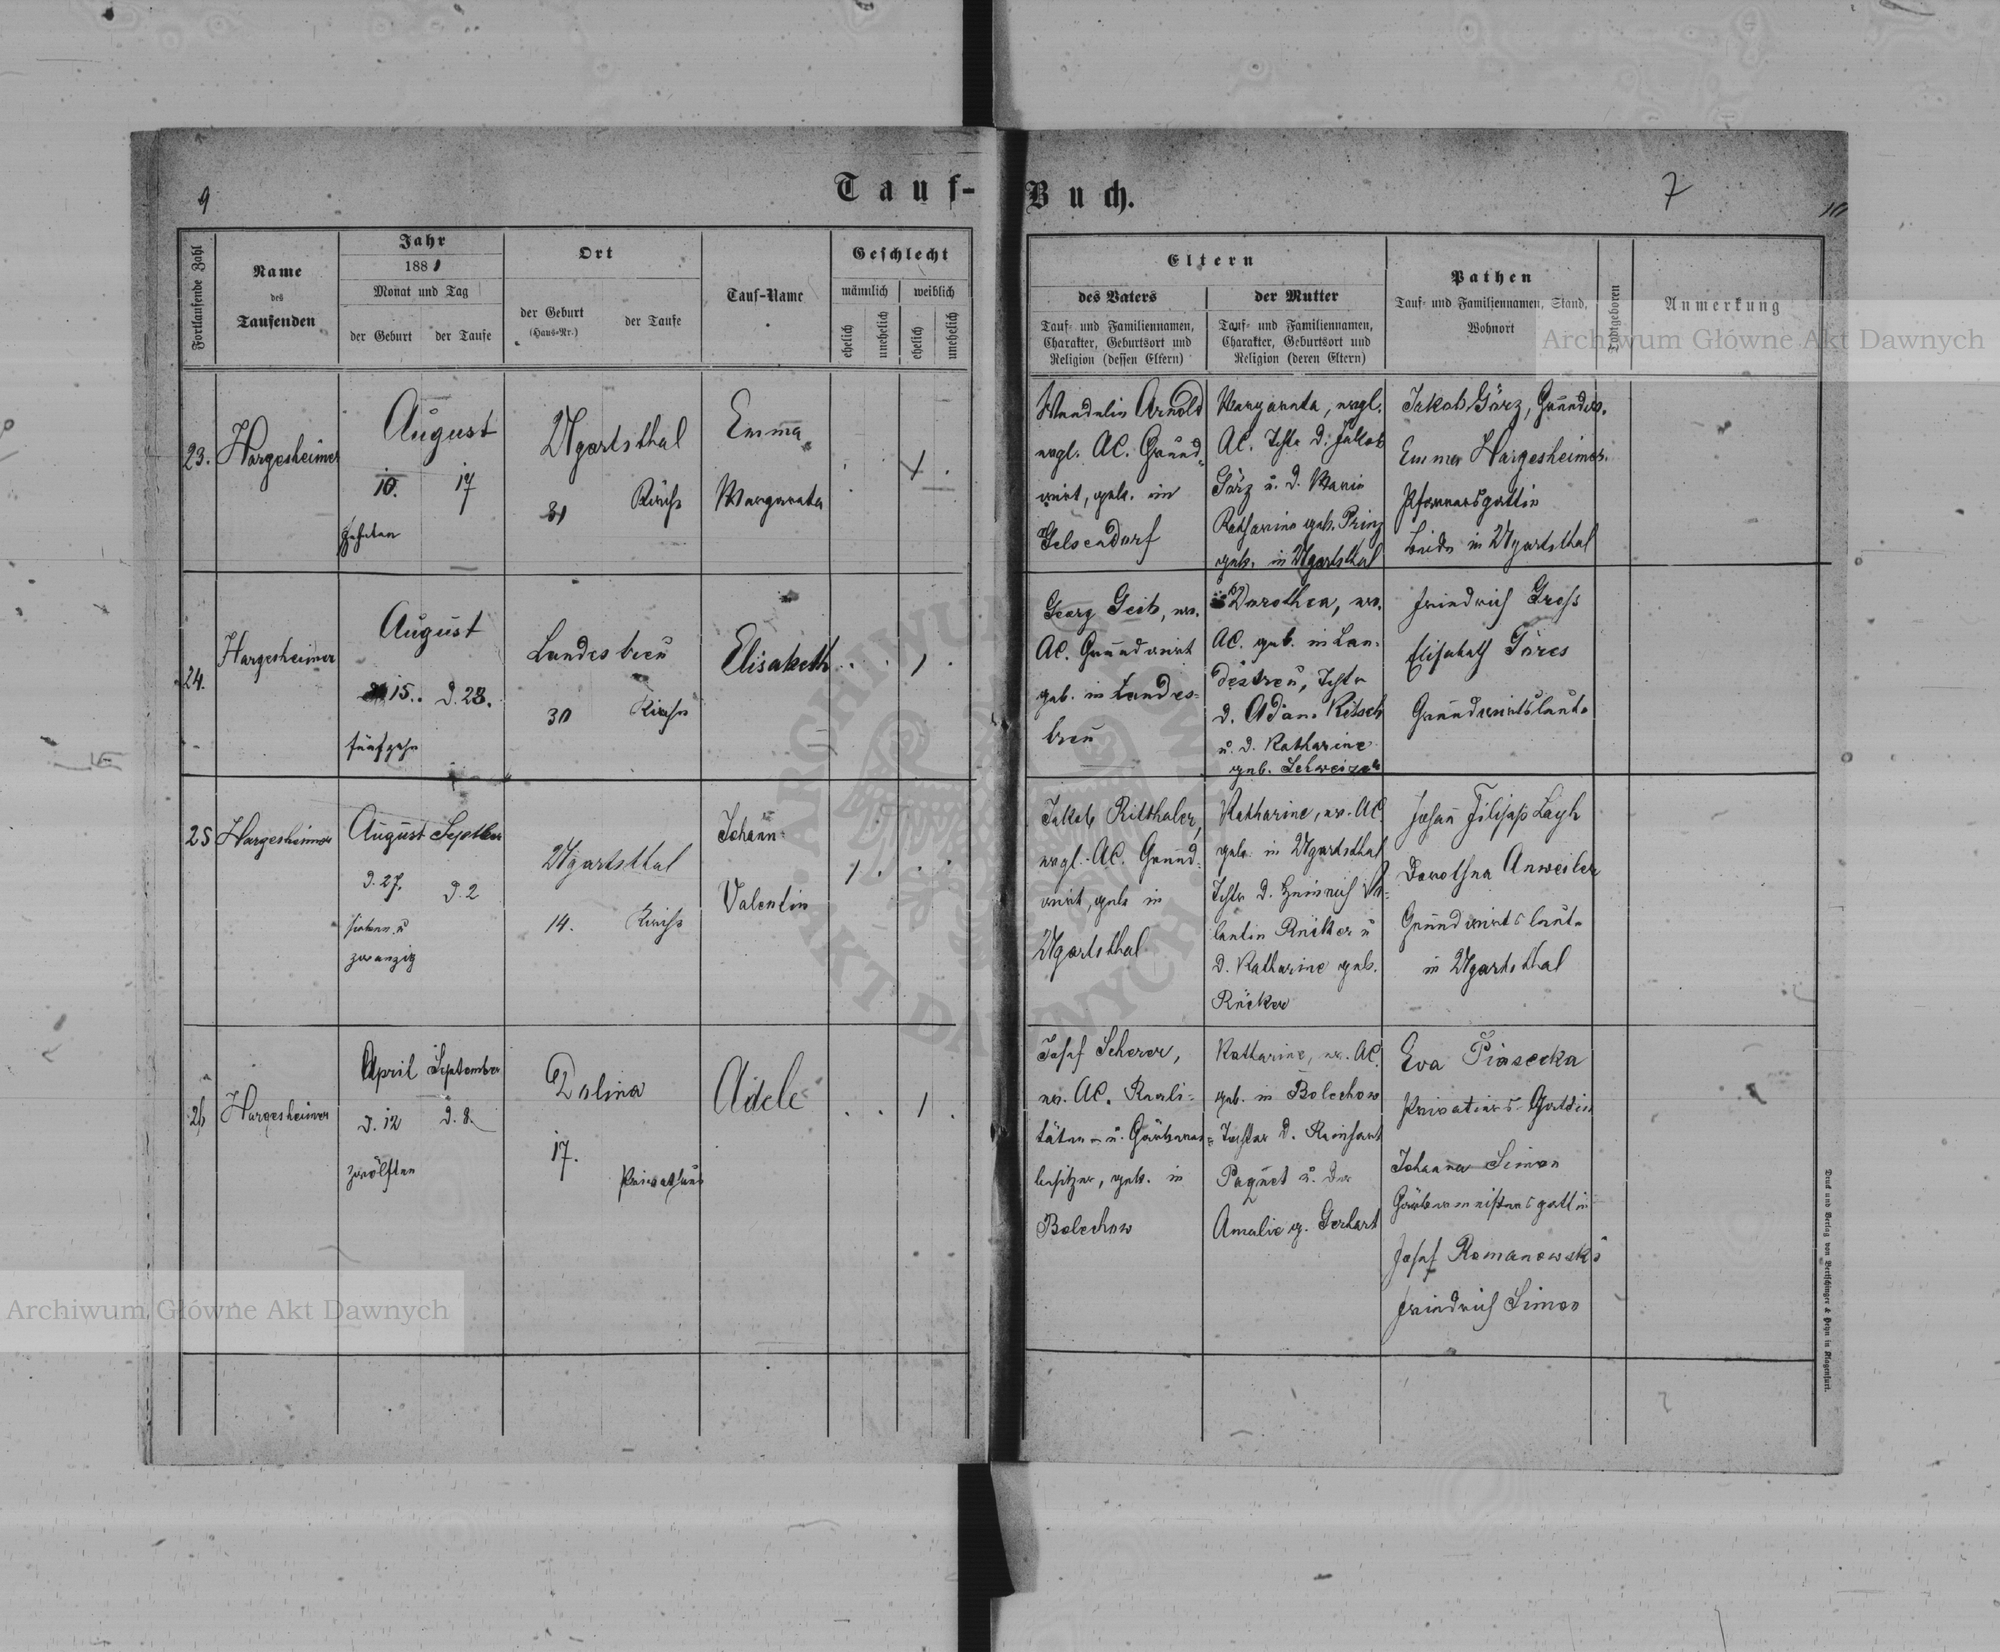 9
Tauf-Buch.
7
Fortlaufende Zahl
Name
des
Taufenden
Jahr
1881
Monat und Tag
der Geburt
der Taufe
Ort
der Geburt
(Haus-Nr.)
der Taufe
Tauf-Name
Geschlecht
männlich
weiblich
ehelich
unehelich
ehelich
unehelich
Eltern
des Vaters
Tauf- und Familiennamen,
Charakter, Geburtsort und
Religion (dessen Eltern)
der Mutter
Tauf- und Familiennamen,
Charakter, Geburtsort und
Religion (deren Eltern)
Pathen
Tauf- und Familiennamen, Stand,
Wohnort
Todtgeboren
Anmerkung
23.
Hargesheimer
August
10.
17
Zehnten
Ugartsthal
31
Kirche
Emma
Margareta
Wendelin Arnold
evgl. AC. Grund-
wirt, geb. in
Gelsendorf
Margareta, evgl.
AC. Tchtr d. Jakob
Görz u. d. Marie
Katharine geb. Prinz
geb. in Ugartsthal
Jakob Görz, Grundw.
Emma Hargesheimer
Pfarrersgattin
beide in Ugartsthal
24.
Hargesheimer
August
15.. d. 28.
fünfzehn
Landestreu
30
Kirche
Elisabeth
Georg Geib, ev.
AC. Grundwirt
geb. in Landes-
treu
Dorothea, ev.
AC. geb. in Lan-
destreu, Tchtr
d. Adam Kötsch
u. d. Katharine
geb. Schweizer
Friedrich Gross
Elisabeth Göres
Grundwirtsleute
25
Hargesheimer
August September
d. 27.
d. 2
sieben u
zwanzig
Ugartsthal
14.
Kirche
Johann
Valentin
Jakob Ritthaler,
evgl. AC. Grund-
wirt, geb in
Ugartsthal
Katharine, ev. AC.
geb. in Ugartsthal
Tchtr d. Heinrich Va-
lentin Rücker u
d. Katharine geb.
Rücker
Johann Filipp Layh
Dorothea Anweiler
Grundwirtsleute
in Ugartsthal
26
Hargesheimer
April September
d. 12
d. 8.
zwölften
Dolina
17.
Privathaus
Adele
Josef Scherer,
ev. AC. Reali-
täten- u. Gärberei-
besitzer, geb. in
Bolechow
Katharine, ev. AC.
geb. in Bolechow
Tochter d. Reinhart
Paquet u. der
Amalie g. Gerhart
Eva Piasecka
Privatiers-Gattin
Johanna Simon
Gärbermeistersgattin
Josef Romanowski
Friedrich Simon
Druck und Verlag von Bertschinger & Heyn in Klagenfurt.
Archiwum Główne Akt Dawnych
Archiwum Główne Akt Dawnych
ARCHIWUM GŁÓWNE AKT DAWNYCH